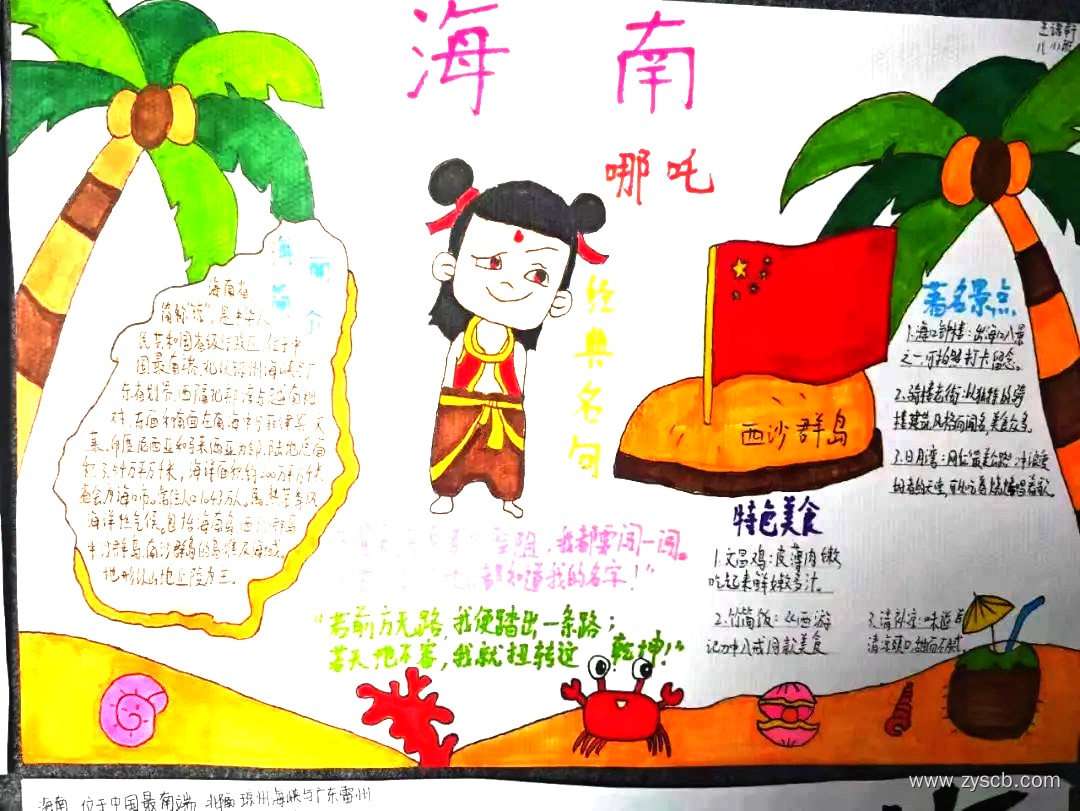 海南
哪吒
海南简介
海南省
简称"琼",是中华人
民共和国省级行政区,位于中
国最南端,北以琼州海峡与广
东省划界,西隔北部湾与越南相
对,东面和南面在南海中与菲律宾、文
莱、印度尼西亚和马来西亚为邻,陆地总面
积3.54万平方千米,海洋面积约200万平方千米
省会为海口市。
海洋性气候。包括海南岛、西沙群岛
中沙群岛、南沙群岛的岛礁及海域。
地形以山地丘陵为主。
经典名句
我都要闯一闯。
都知道我的名字!"
"若前方无路,我便踏出一条路;
若天地不容,我就扭转这乾坤!"
西沙群岛
著名景点
1.海口钟楼:出海口八景
之一,可拍照打卡留念。
2.骑楼老街:以独特的骑
楼建筑风格而闻名,美食众多。
3.日月湾:
特色美食
1.文昌鸡:皮薄肉嫩
吃起来鲜嫩多汁。
2.竹筒饭:以西游
记中八戒同款美食
3.清补凉:味道
清凉爽口,甜而不腻。
www.zyscb.com
海南 位于中国最南端 北临琼州海峡与广东雷州